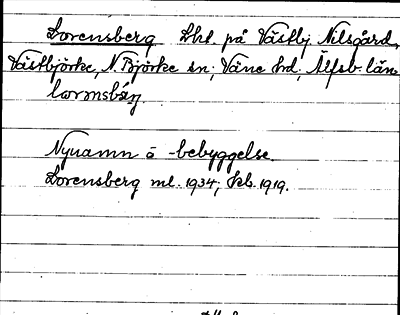 Lorensberg Lht. på Västbj. Nilsgård,
Västbjörke, N. Björke sn, Väne hd, Älfsb. län.
Nynamn å -bebyggelse.
Lorensberg ml. 1934, kb. 1919.